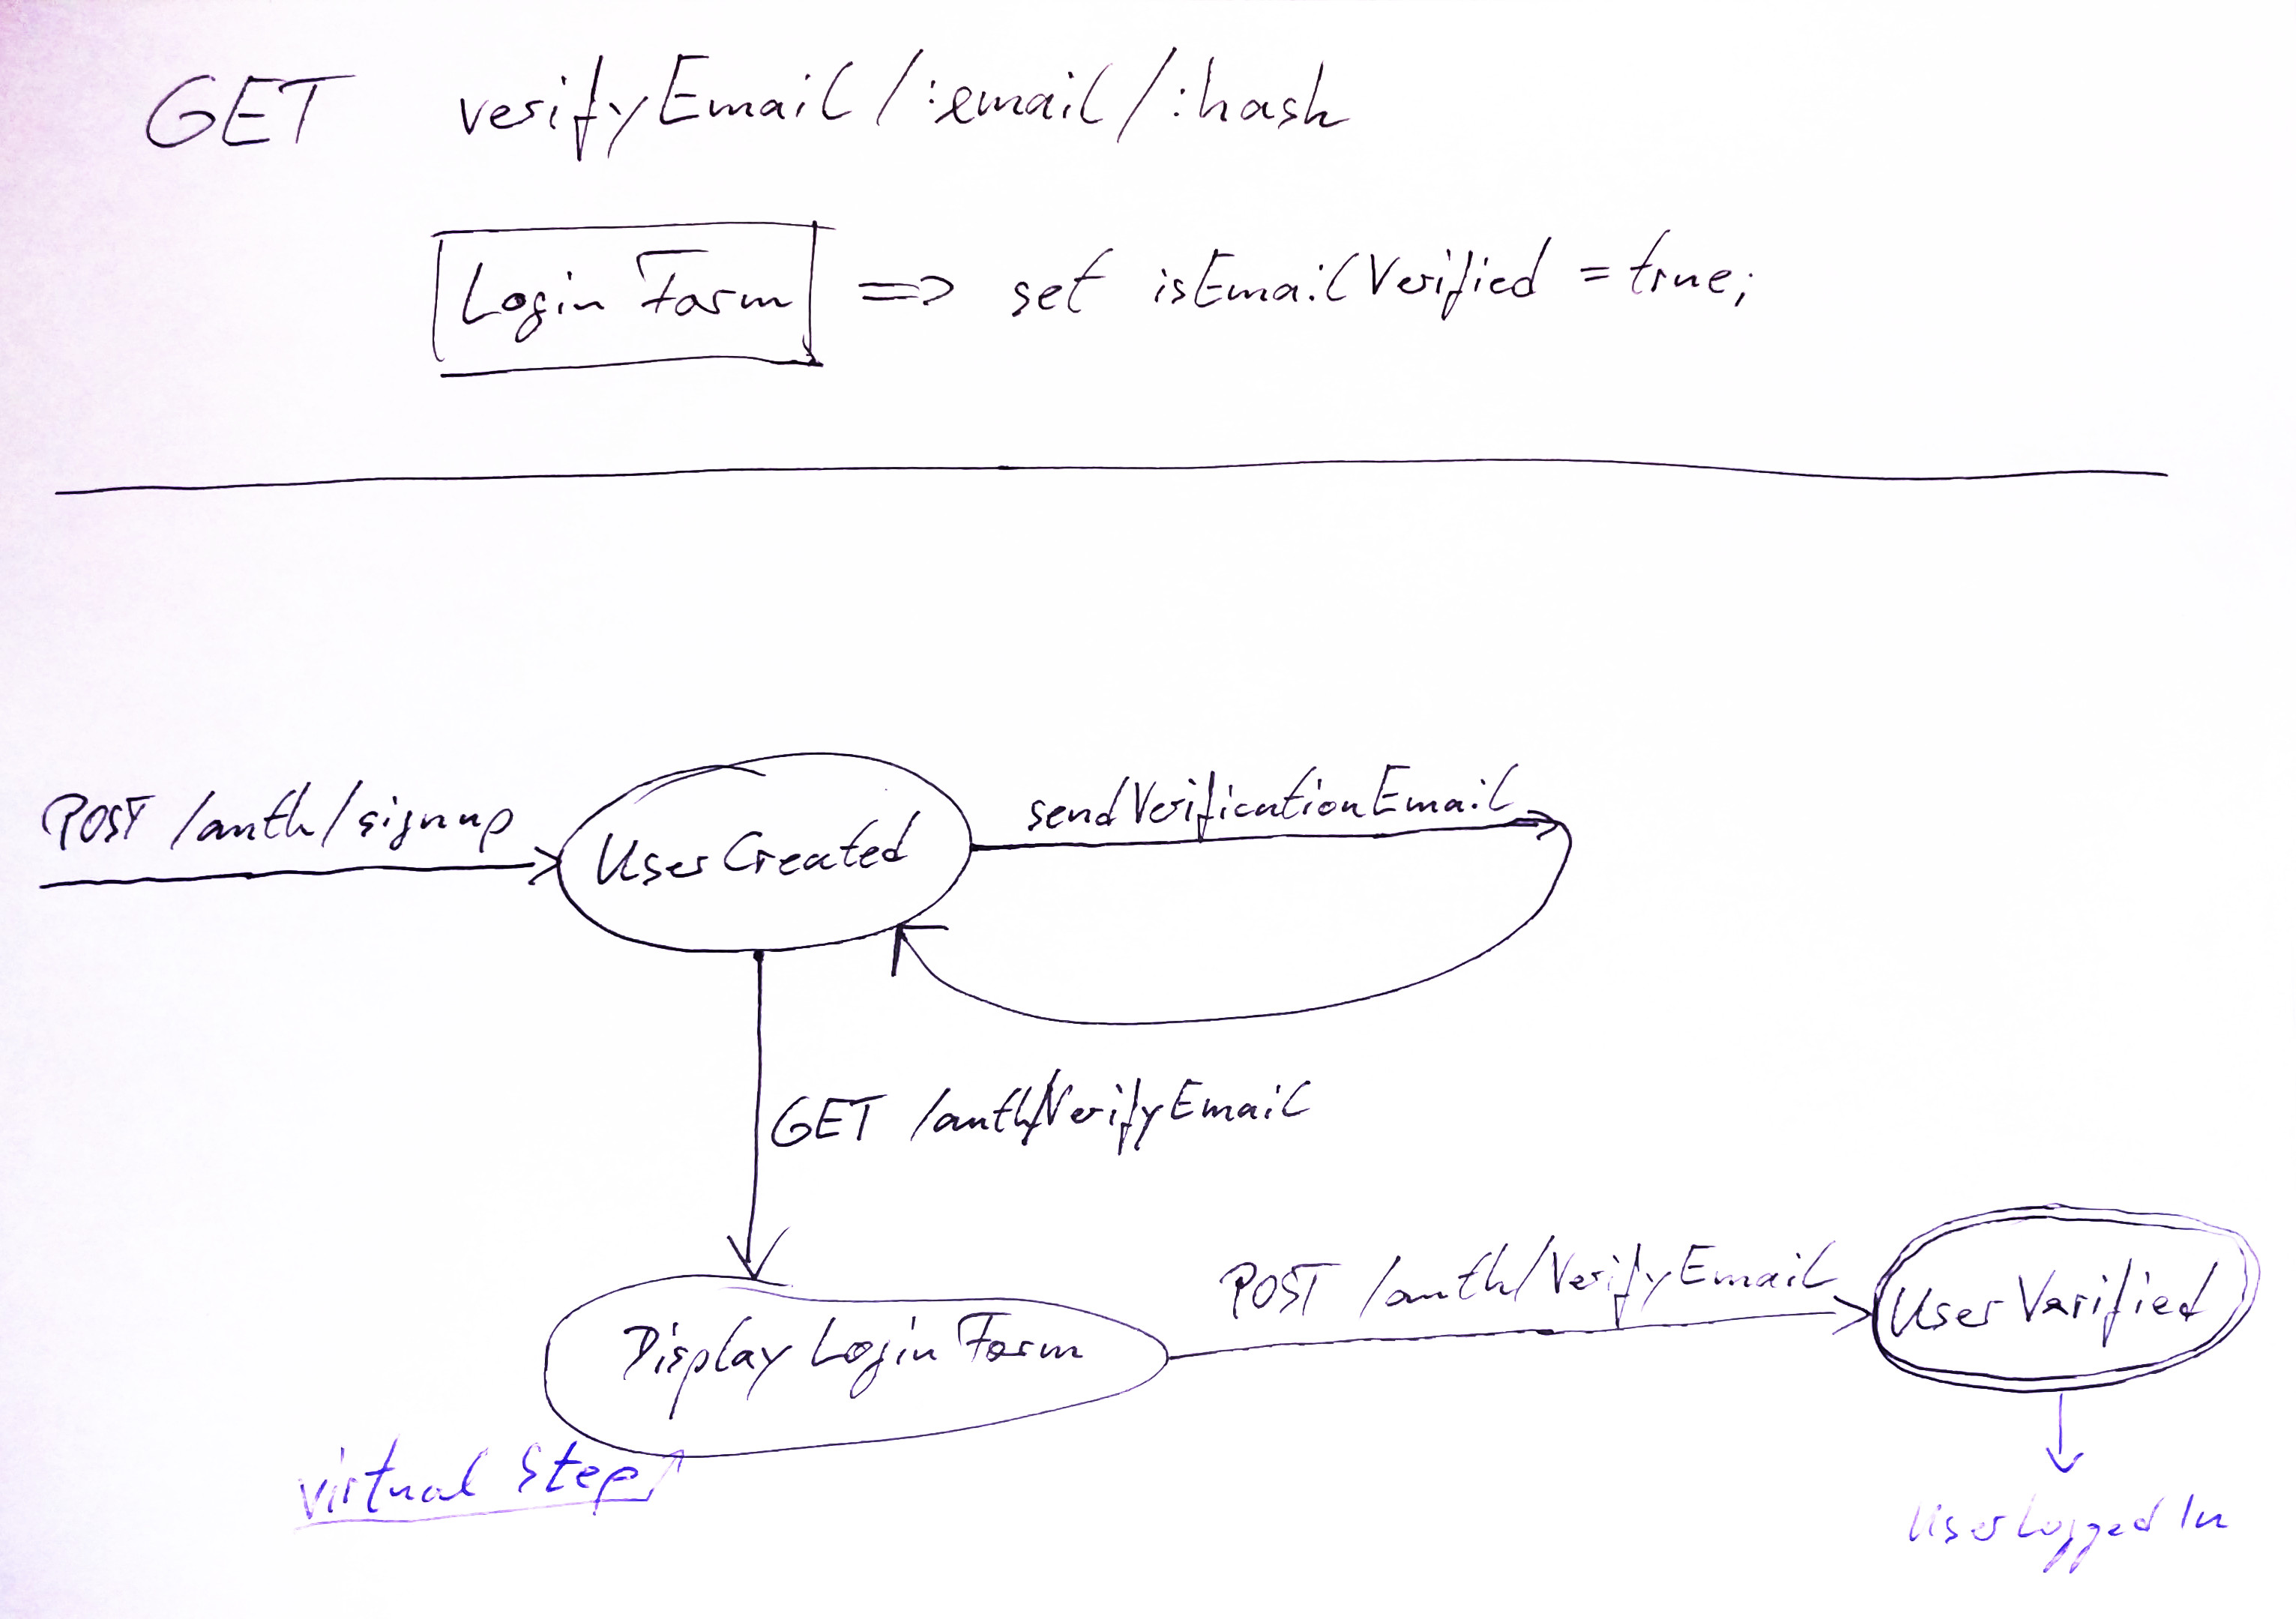 GET verifyEmail/:email/:hash
Login Form => set isEmailVerified = true;
POST /auth/signup
User Created
sendVerificationEmail
GET /auth/VerifyEmail
Display Login Form
virtual Step
POST /auth/VerifyEmail
User Varified
User Logged In